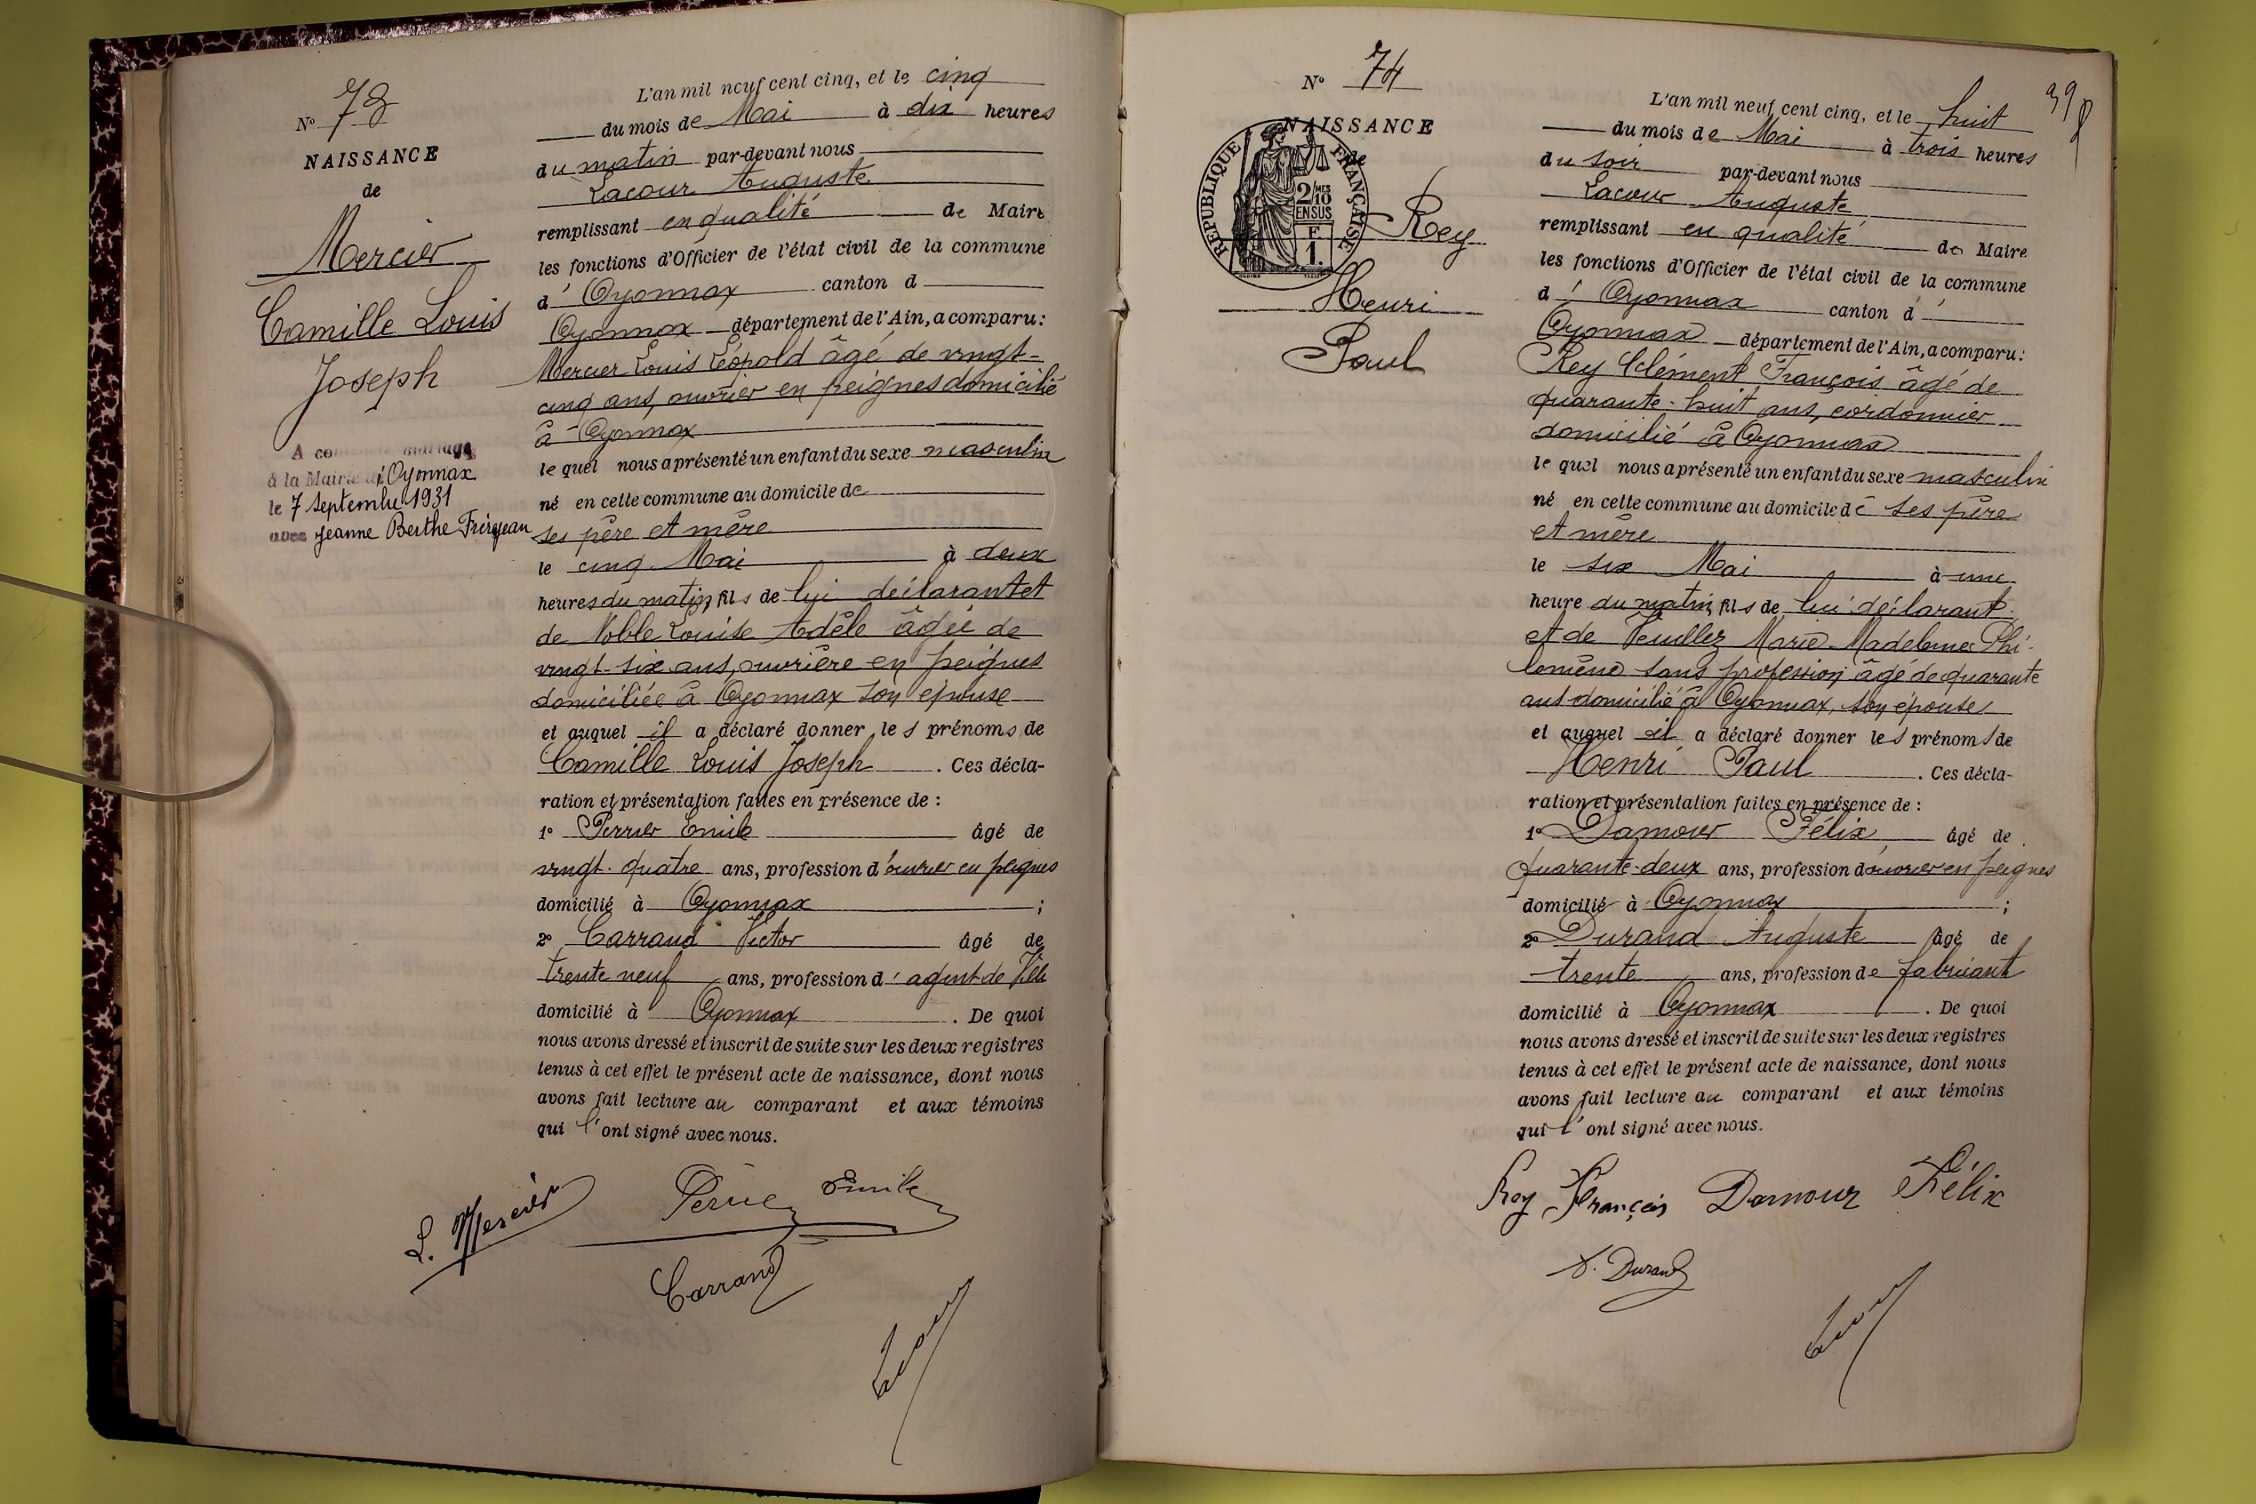 N° 73
NAISSANCE
de
Mercier
Camille Louis
Joseph
A co mariage
à la Mairie d'Oyonnax
le 7 Septembre 1931
avec Jeanne Berthe
L'an mil neuf cent cinq, et le cinq
du mois de Mai à dix heures
du matin par-devant nous
Lacour Auguste
remplissant en qualité de Maire
les fonctions d'Officier de l'état civil de la commune
d' Oyonnax canton d
Oyonnax département de l'Ain, a comparu :
Mercier Louis Léopold âgé de vingt-
cinq ans, ouvrier en peignes domicilié
à Oyonnax
le quel nous a présenté un enfant du sexe masculin
né en cette commune au domicile de
ses père et mère
le cinq Mai à deux
heures du matin, fils de lui déclarant et
de Noble Louise Adèle âgée de
vingt-six ans, ouvrière en peignes
domiciliée à Oyonnax son épouse
et auquel il a déclaré donner les prénoms de
Camille Louis Joseph. Ces décla-
ration et présentation faites en présence de :
1° Perrier Emile âgé de
vingt-quatre ans, profession d'ouvrier en peignes
domicilié à Oyonnax ;
2° Carrand Victor âgé de
trente neuf ans, profession d'agent de Ville
domicilié à Oyonnax. De quoi
nous avons dressé et inscrit de suite sur les deux registres
tenus à cet effet le présent acte de naissance, dont nous
avons fait lecture au comparant et aux témoins
qui l'ont signé avec nous.
L. Mercier Emile
Carrand
N° 74
NAISSANCE
de
RÉPUBLIQUE FRANÇAISE
2/10 MES
EN SUS
F
1.
Rey
Henri
Paul
39
L'an mil neuf cent cinq, et le huit
du mois de Mai à trois heures
du soir par-devant nous
Lacour Auguste
remplissant en qualité de Maire
les fonctions d'Officier de l'état civil de la commune
d' Oyonnax canton d'
Oyonnax département de l'Ain, a comparu :
Rey Clément François âgé de
quarante-huit ans, cordonnier
domicilié à Oyonnax
le quel nous a présenté un enfant du sexe masculin
né en cette commune au domicile de ses père
et mère
le six Mai à une
heure du matin, fils de lui déclarant
et de Vuillez Marie Madeleine Phi-
lomène sans profession âgé de quarante
ans domicilié à Oyonnax, son épouse
et auquel il a déclaré donner les prénoms de
Henri Paul. Ces décla-
ration et présentation faites en présence de :
1° Damour Félix âgé de
quarante-deux ans, profession d'ouvrier en peignes
domicilié à Oyonnax ;
2° Durand Auguste âgé de
trente ans, profession de fabricant
domicilié à Oyonnax. De quoi
nous avons dressé et inscrit de suite sur les deux registres
tenus à cet effet le présent acte de naissance, dont nous
avons fait lecture au comparant et aux témoins
qui l'ont signé avec nous.
Rey François Damour Félix
A. Durand